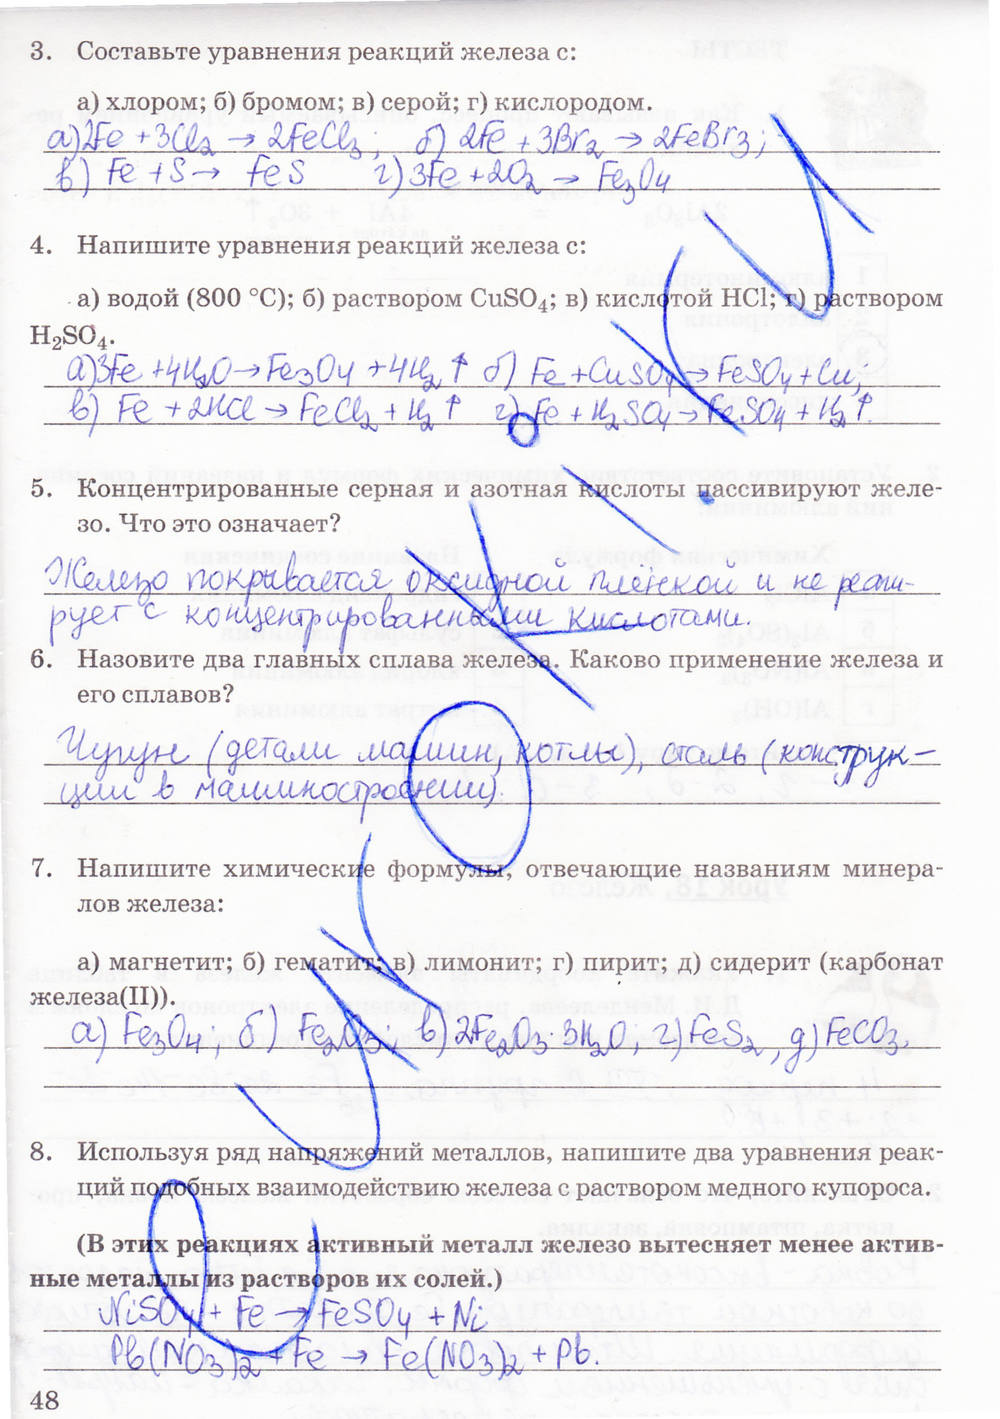 3. Составьте уравнения реакций железа с:
а) хлором; б) бромом; в) серой; г) кислородом.
а) 2Fe + 3Cl₂ → 2FeCl₃; б) 2Fe + 3Br₂ → 2FeBr₃;
в) Fe + S → FeS г) 3Fe + 2O₂ → Fe₃O₄
4. Напишите уравнения реакций железа с:
а) водой (800 °C); б) раствором CuSO₄; в) кислотой HCl; г) раствором
H₂SO₄.
а) 3Fe + 4H₂O → Fe₃O₄ + 4H₂↑ б) Fe + CuSO₄ → FeSO₄ + Cu;
в) Fe + 2HCl → FeCl₂ + H₂↑ г) Fe + H₂SO₄ → FeSO₄ + H₂↑.
5. Концентрированные серная и азотная кислоты пассивируют желе-
зо. Что это означает?
Железо покрывается оксидной плёнкой и не реаги-
рует с концентрированными кислотами.
6. Назовите два главных сплава железа. Каково применение железа и
его сплавов?
Чугун (детали машин, котлы), сталь (конструк-
ции в машиностроении).
7. Напишите химические формулы, отвечающие названиям минера-
лов железа:
а) магнетит; б) гематит; в) лимонит; г) пирит; д) сидерит (карбонат
железа(II)).
а) Fe₃O₄; б) Fe₂O₃; в) 2Fe₂O₃·3H₂O; г) FeS₂, д) FeCO₃
8. Используя ряд напряжений металлов, напишите два уравнения реак-
ций подобных взаимодействию железа с раствором медного купороса.
(В этих реакциях активный металл железо вытесняет менее актив-
ные металлы из растворов их солей.)
NiSO₄ + Fe → FeSO₄ + Ni
Pb(NO₃)₂ + Fe → Fe(NO₃)₂ + Pb.
48